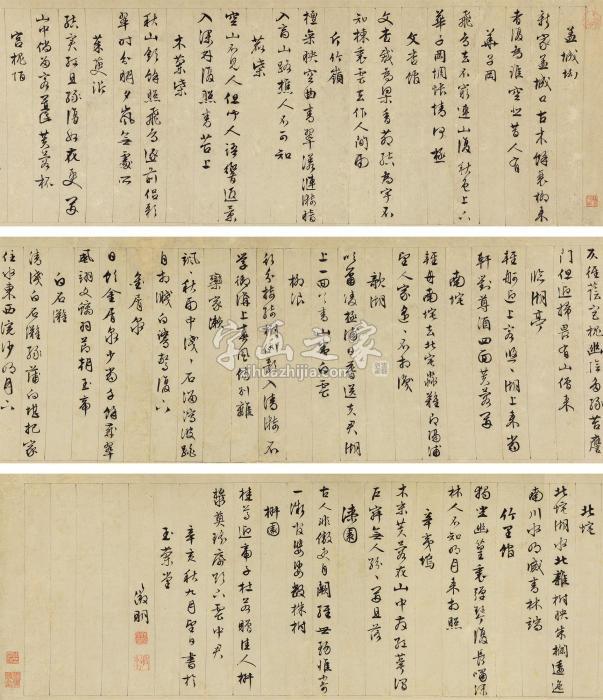 孟城坳
新家孟城口古木餘衰柳來
者復為誰空悲昔人有
華子岡
飛鳥去不窮連山復秋色上下
華子岡惆悵情何極
文杏館
文杏裁為梁香茅結為宇不
知棟裏雲去作人間雨
斤竹嶺
檀欒映空曲青翠漾漣漪暗
入商山路樵人不可知
鹿柴
空山不見人但聞人語響返景
入深林復照青苔上
木蘭柴
秋山斂餘照飛鳥逐前侶彩
翠時分明夕嵐無處所
茱萸沜
結實紅且綠復如花更開
山中倘留客置芙蓉杯
宮槐陌
仄徑蔭宮槐幽陰多綠苔應
門但迎掃畏有山僧來
臨湖亭
輕舸迎上客悠悠湖上來當
軒對尊酒四面芙蓉開
南垞
輕舟南垞去北垞淼難即隔浦
望人家遙遙不相識
欹湖
吹簫凌極浦日暮送夫君湖
上一回首青山卷白雲
柳浪
分行接綺樹倒影入清漪不
學御溝上春風傷別離
欒家瀨
颯颯秋雨中淺淺石溜瀉波跳
自相濺白鷺驚復下
金屑泉
日飲金屑泉少當千餘歲翠
鳳翊文螭羽節朝玉帝
白石灘
清淺白石灘綠蒲向堪把家
住水東西浣紗明月下
北垞
北垞湖水北雜樹映朱欄逶迤
南川水明滅青林端
竹里館
獨坐幽篁裏彈琴復長嘯深
林人不知明月來相照
辛夷塢
木末芙蓉花山中發紅萼澗
戶寂無人紛紛開且落
漆園
古人非傲吏自闕經世務惟寄
一微官婆娑數株樹
椒園
桂尊迎帝子杜若贈佳人椒
漿奠瑤席欲下雲中君
辛亥秋九月望日書於
玉蘭堂
徵明
字画之家
zihuazhijia.com